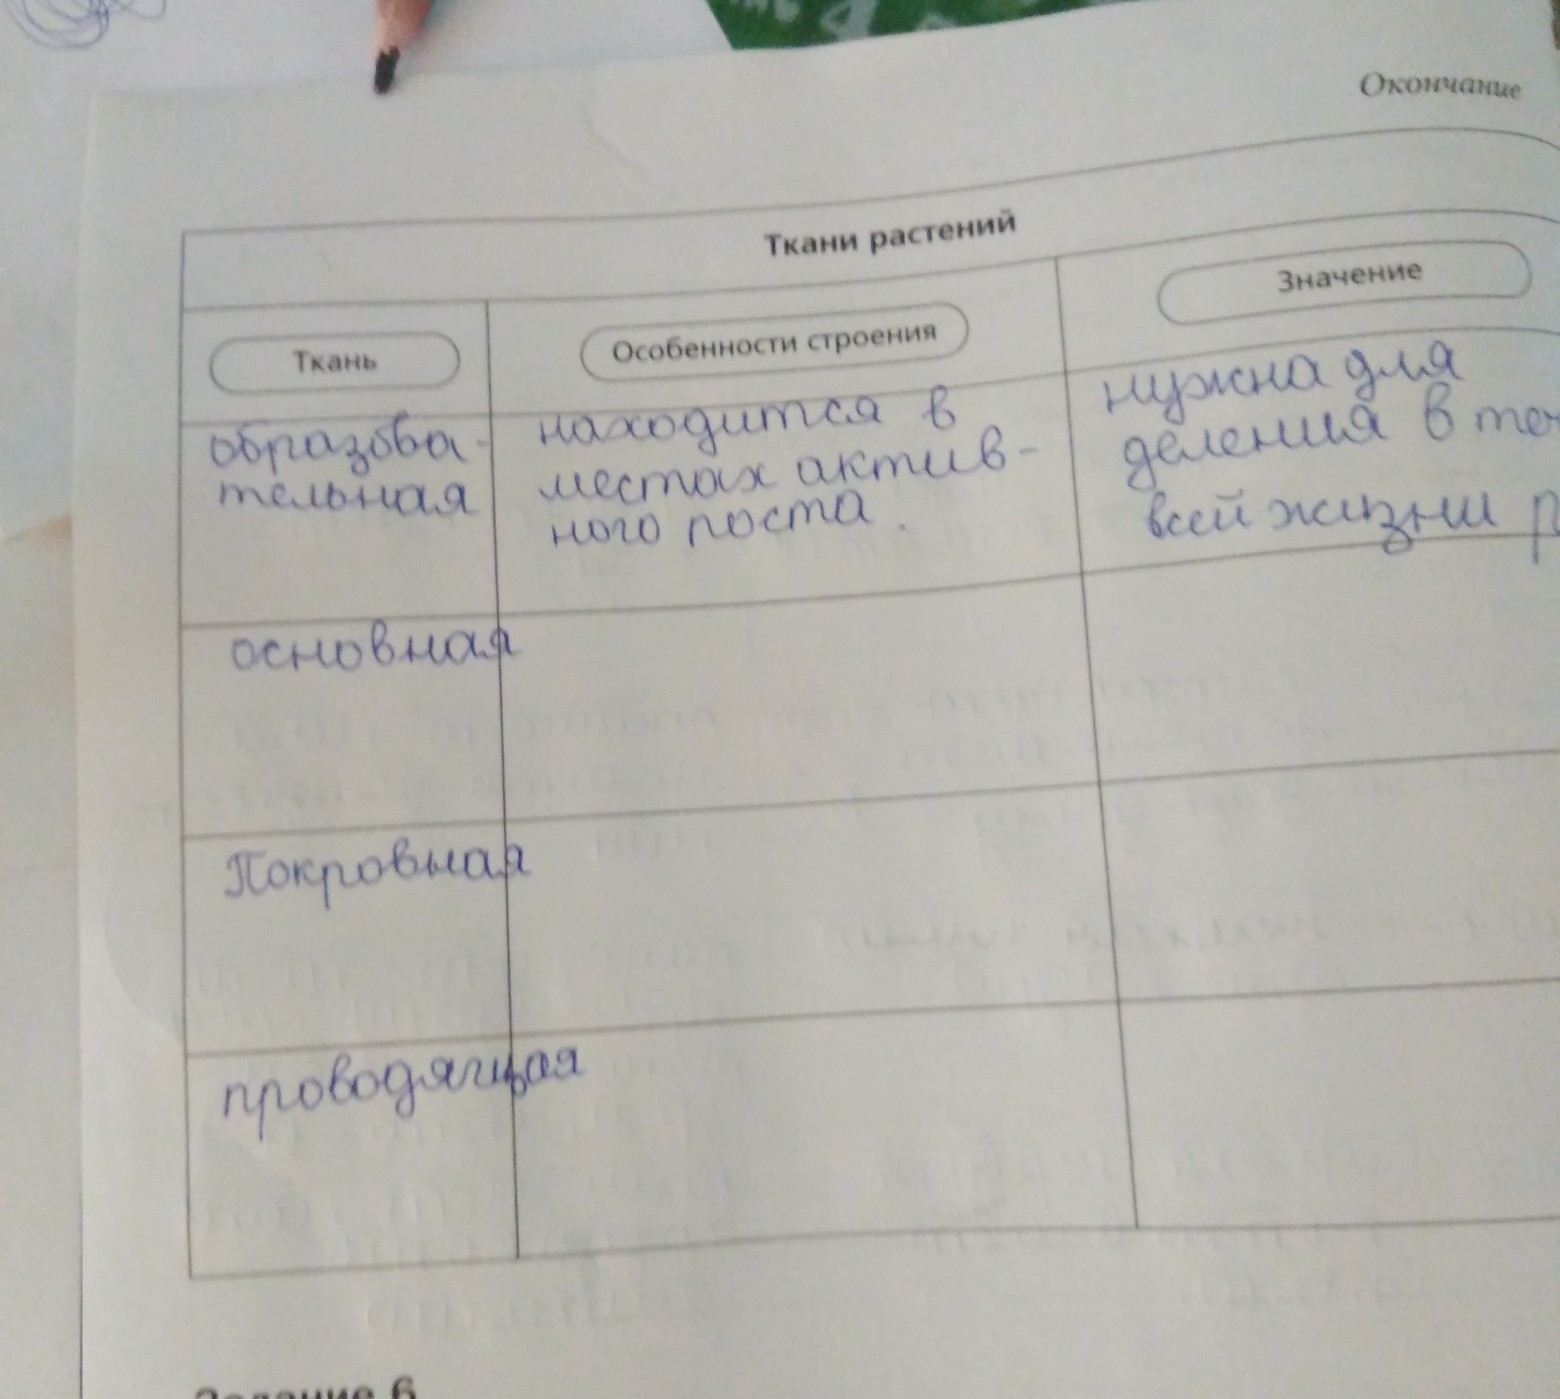 Окончание
Ткани растений
Ткань
Особенности строения
Значение
образова-
тельная
находится в
местах актив-
ного роста.
нужна для
деления в теч
всей жизни р
основная
Покровная
проводящая
Задание 6